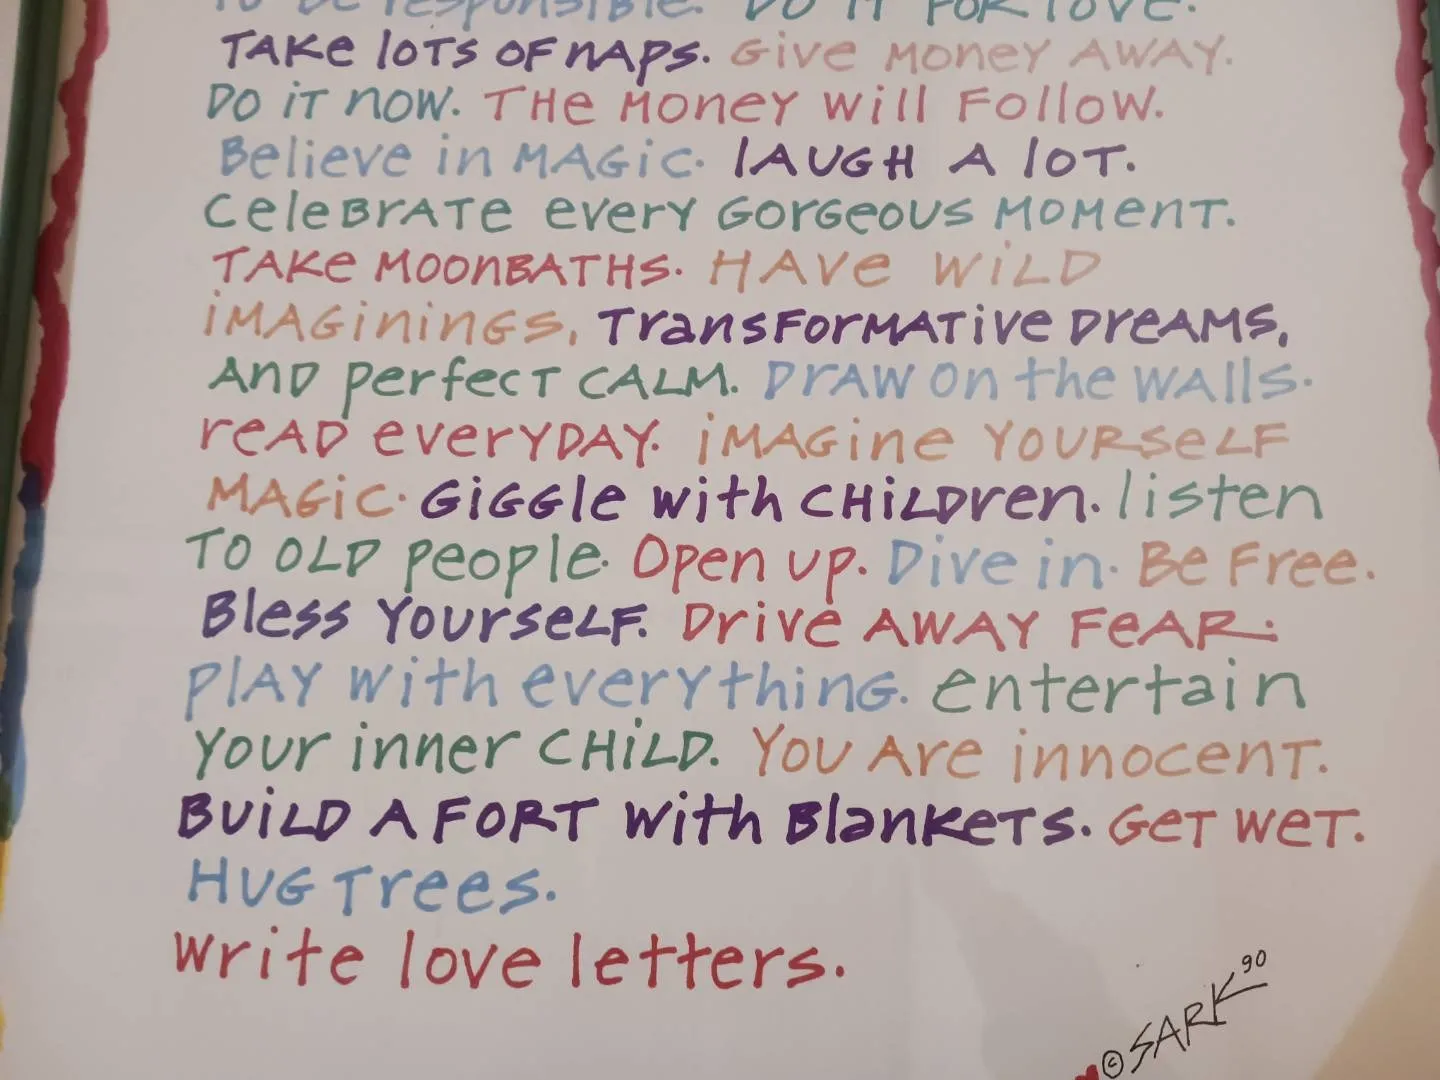 TO BE responsible. DO IT FOR love.
TAKE lOTS OF NAPS. Give Money AWAY.
DO iT NOW. THe Money will Follow.
Believe in MAGiC. lAUGH A lOT.
CeleBrATe every GorGeous MOMenT.
TAKe MOONBATHS. HAVe WiLD
iMAGininGS, TransFORMATive DreAMS,
AND perfecT CALM. DrAW on the WAlls.
reAD everyDAY. iMAGine YOURSelF
MAGiC. GiGGle with CHiLDren. listen
TO OLD people. Open up. Dive in. Be Free.
Bless YourseLF. Drive AWAY FeAR.
PlAY with everythinG. entertain
Your inner CHiLD. You Are innocenT.
BUiLD A FORT with BlanKeTS. GeT WeT.
HUG Trees.
Write love letters.
©SARK 90